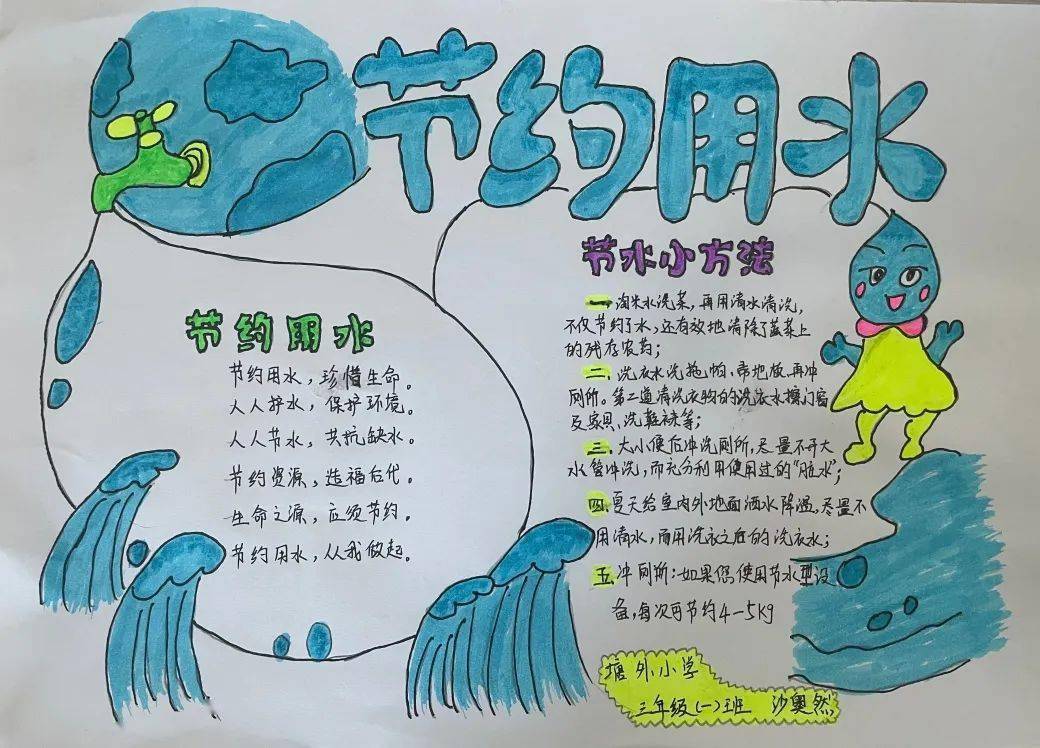 节约用水
节约用水
节约用水，珍惜生命。
人人护水，保护环境。
人人节水，共抗缺水。
节约资源，造福后代。
生命之源，应须节约。
节约用水，从我做起。
节水小方法
一、淘米水洗菜，再用清水清洗，
不仅节约了水，还有效地清除了蔬菜上
的残存农药；
二、洗衣水洗拖帕、帚地板、再冲
厕所。第二道清洗衣物的洗衣水擦门窗
及家具、洗鞋袜等；
三、大小便后冲洗厕所，尽量不开大
水管冲洗，而充分利用使用过的“脏水”；
四、夏天给室内外地面洒水降温，尽量不
用清水，而用洗衣之后的洗衣水；
五、冲厕所：如果您使用节水型设
备，每次可节约4-5Kg
塘外小学
三年级(一)班 沙奥然